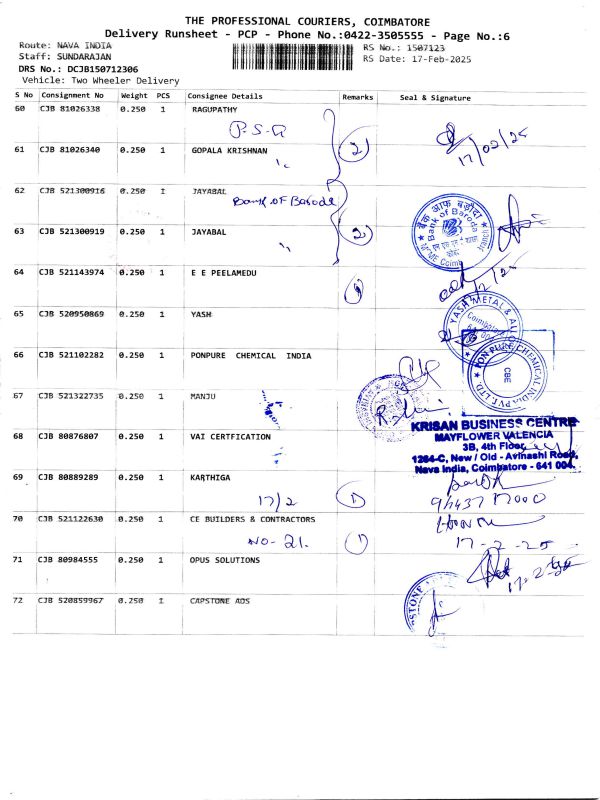 THE PROFESSIONAL COURIERS, COIMBATORE
Delivery Runsheet - PCP - Phone No.:0422-3505555 - Page No.:6
Route: NAVA INDIA
RS No.: 1507123
Staff: SUNDARAJAN
RS Date: 17-Feb-2025
DRS No.: DCJB150712306
Vehicle: Two Wheeler Delivery
S No Consignment No Weight PCS Consignee Details Remarks Seal & Signature
60 CJB 81026338 0.250 1 RAGUPATHY
P.S.G
17/02/25
61 CJB 81026340 0.250 1 GOPALA KRISHNAN
2
62 CJB 521300916 0.250 1 JAYABAL
Bank of Baroda
बैंक ऑफ़ बड़ौदा
Bank of Baroda
63 CJB 521300919 0.250 1 JAYABAL
2
64 CJB 521143974 0.250 1 E E PEELAMEDU
65 CJB 520950869 0.250 1 YASH
YASH METAL &
Coimbatore
66 CJB 521102282 0.250 1 PONPURE CHEMICAL INDIA
PON PURE CHEMICAL INDIA PVT. LTD.
CBE
67 CJB 521322735 0.250 1 MANJU
KRISAN BUSINESS CENTRE
MAYFLOWER VALENCIA
3B, 4th Floor,
1264-C, New / Old - Avinashi Road,
Nava India, Coimbatore - 641 004.
68 CJB 80876807 0.250 1 VAI CERTFICATION
69 CJB 80889289 0.250 1 KARTHIGA
17/2
1
70 CJB 521122630 0.250 1 CE BUILDERS & CONTRACTORS
NO- 21.
1
17-2-25
71 CJB 80984555 0.250 1 OPUS SOLUTIONS
72 CJB 520859967 0.250 1 CAPSTONE ADS